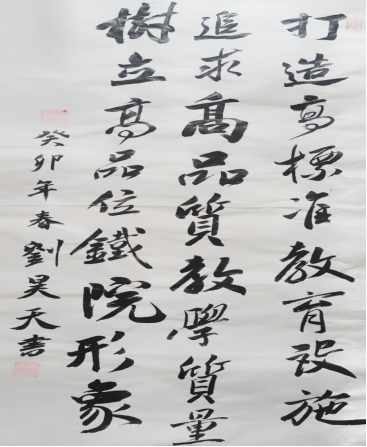 打造高標准教育设施
追求高品質教學質量
樹立高品位鐵院形象
癸卯年春劉昊天書